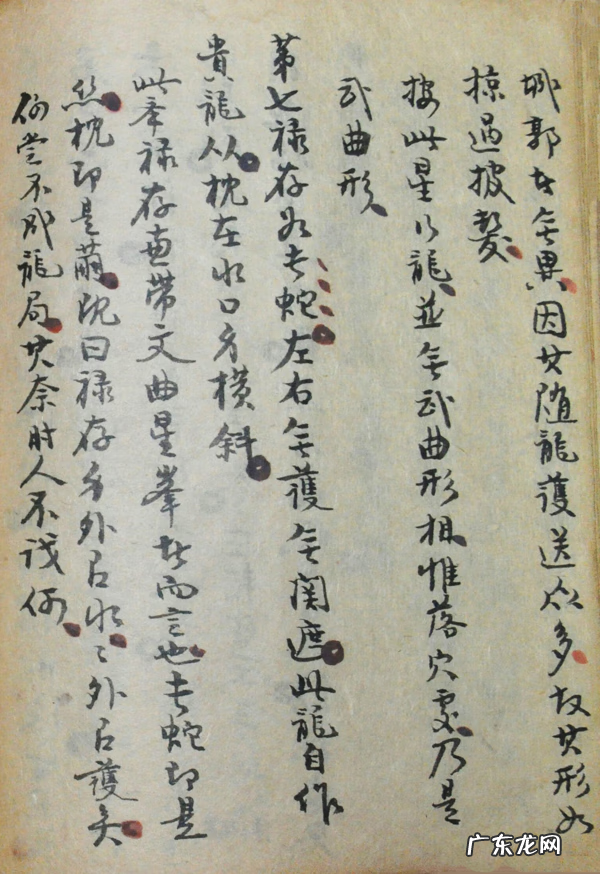 城郭者無異因其隨龍護送众多故其形如
掠過披髮
按此星行龍並無武曲形相惟落穴處乃是
武曲形
第七禄存如長蛇左右無護無関遮此龍自作
貴龍从枕在水口方橫斜
此本禄存兼帶文曲星峯者而言也長蛇即是
絲枕即是既曰禄存身外曰水〻外曰護矣
何嘗不成龍局其奈時人不識何
广东龙网